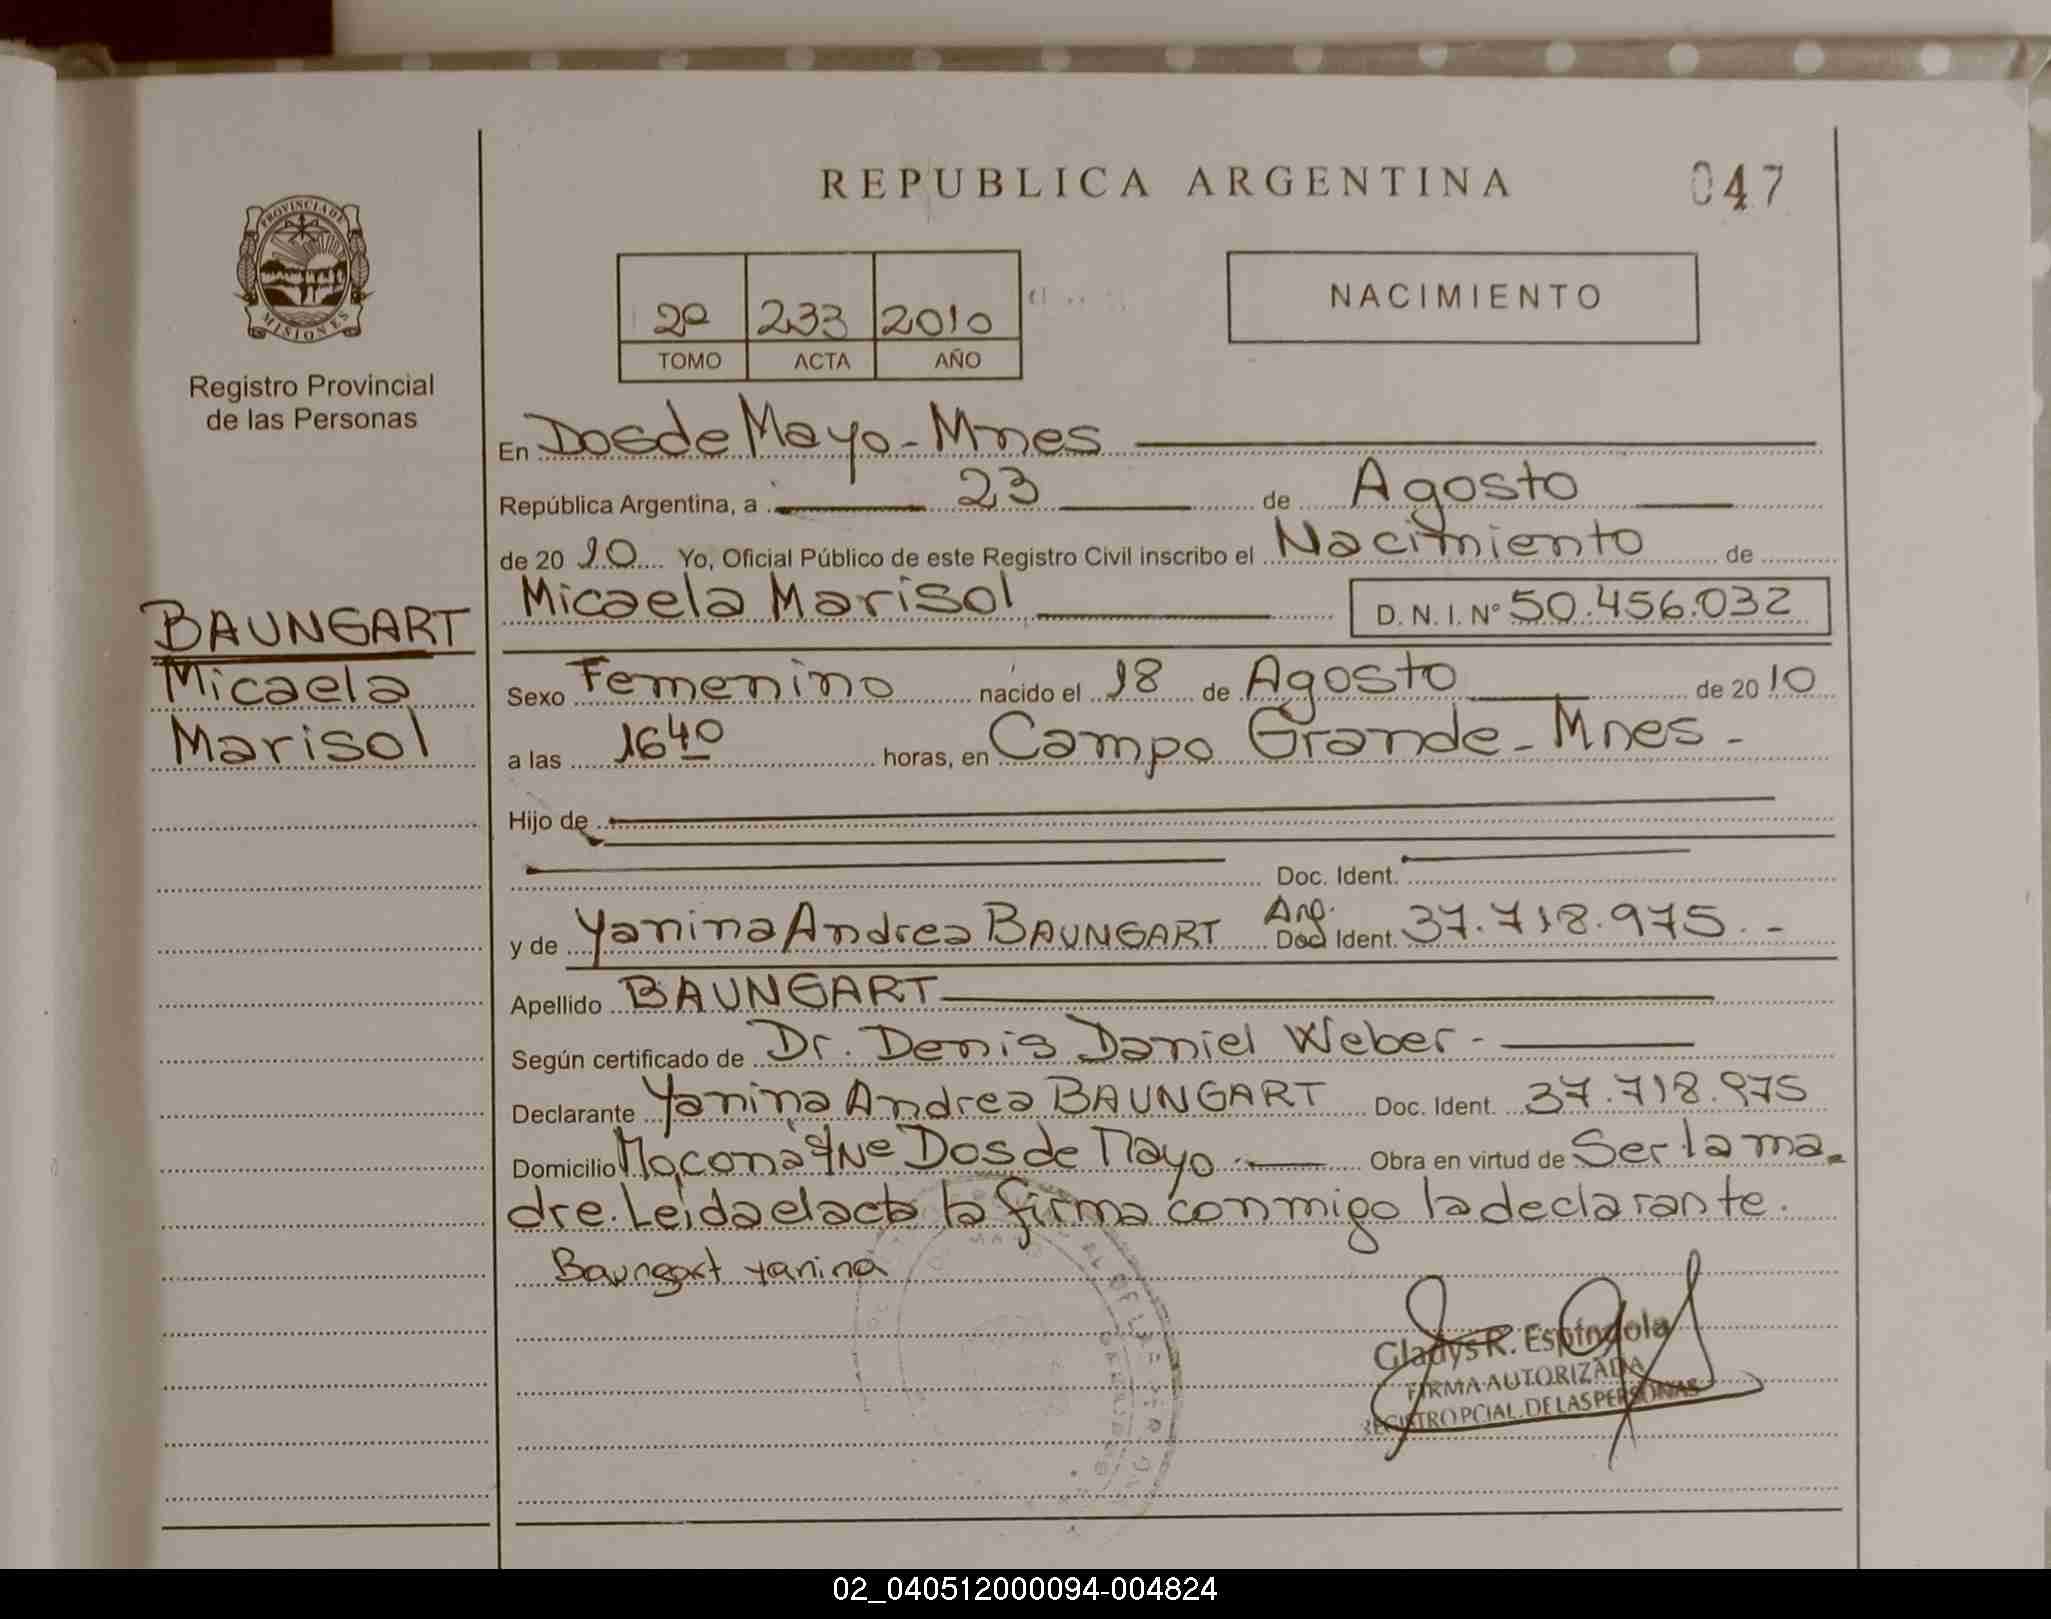 REPUBLICA ARGENTINA
047
PROVINCIA DE
MISIONES
Registro Provincial
de las Personas
2º 233 2010
TOMO ACTA AÑO
NACIMIENTO
En Dos de Mayo - Mnes
República Argentina, a 23 de Agosto
de 20 10 Yo, Oficial Público de este Registro Civil inscribo el Nacimiento de
Micaela Marisol D. N. I. Nº 50.456.032
BAUNGART
Micaela
Marisol
Sexo Femenino nacido el 18 de Agosto de 20 10
a las 16 40 horas, en Campo Grande - Mnes -
Hijo de
Doc. Ident.
y de Yanina Andrea BAUNGART Arg. Doc. Ident. 37.718.975. -
Apellido BAUNGART
Según certificado de Dr. Denis Daniel Weber -
Declarante Yanina Andrea BAUNGART Doc. Ident. 37.718.975
Domicilio Moconá Dos de Mayo Obra en virtud de Ser la ma-
dre. Leida el acta la firma conmigo la declarante.
Baungart yanina
Gladys R. Espíndola
FIRMA AUTORIZADA
REGISTRO PCIAL. DE LAS PERSONAS
02_040512000094-004824